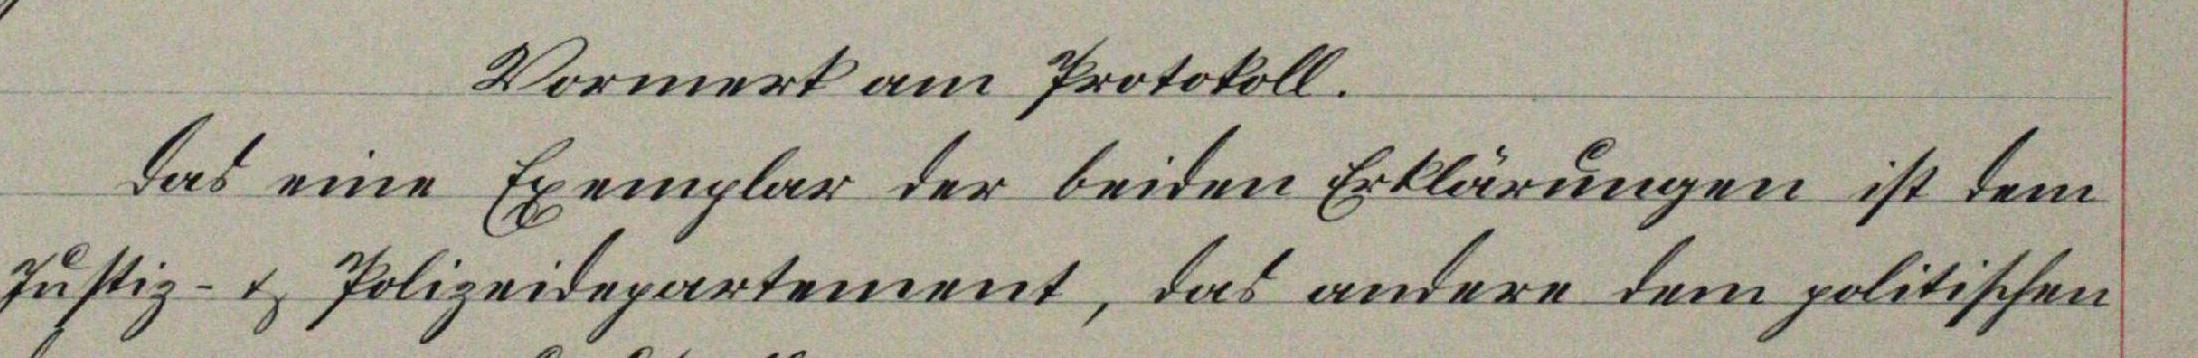 Vormerk am Protokoll.
Das eine Exemplar der beiden Erklärungen ist dem
Justiz- & Polizeidepartement, das andere dem politischen